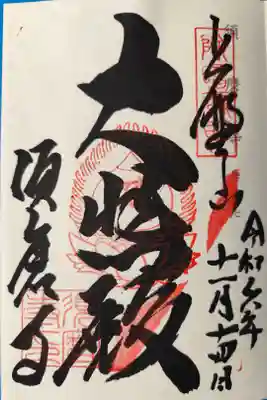 上野山
令和六年
十一月十四日
大悲殿
須磨寺